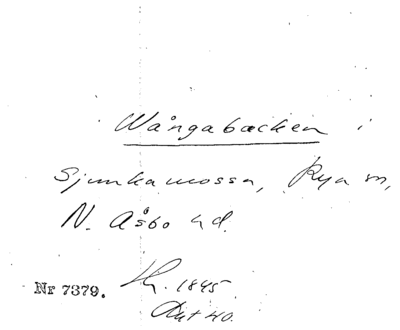 Wångabacken i
Sjunkamossa, Rya sn,
N. Åsbo hd.
Nr 7379.
1845.
40.